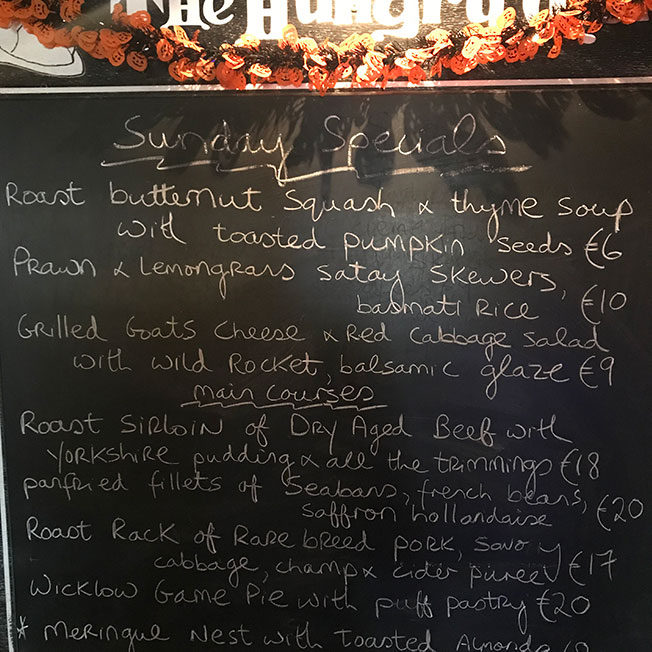 The Hungry
Sunday Specials
Roast butternut Squash & thyme Soup
with toasted pumpkin seeds €6
Prawn & Lemongrass satay skewers,
basmati Rice €10
Grilled Goats Cheese & Red Cabbage salad
with wild Rocket, balsamic glaze €9
main courses
Roast Sirloin of Dry Aged Beef with
Yorkshire pudding & all the trimmings €18
panfried fillets of Seabass, french beans,
saffron hollandaise €20
Roast Rack of Rare breed pork, savoy
cabbage, champ & cider puree €17
Wicklow Game Pie with puff pastry €20
* Meringue Nest with toasted Almonds